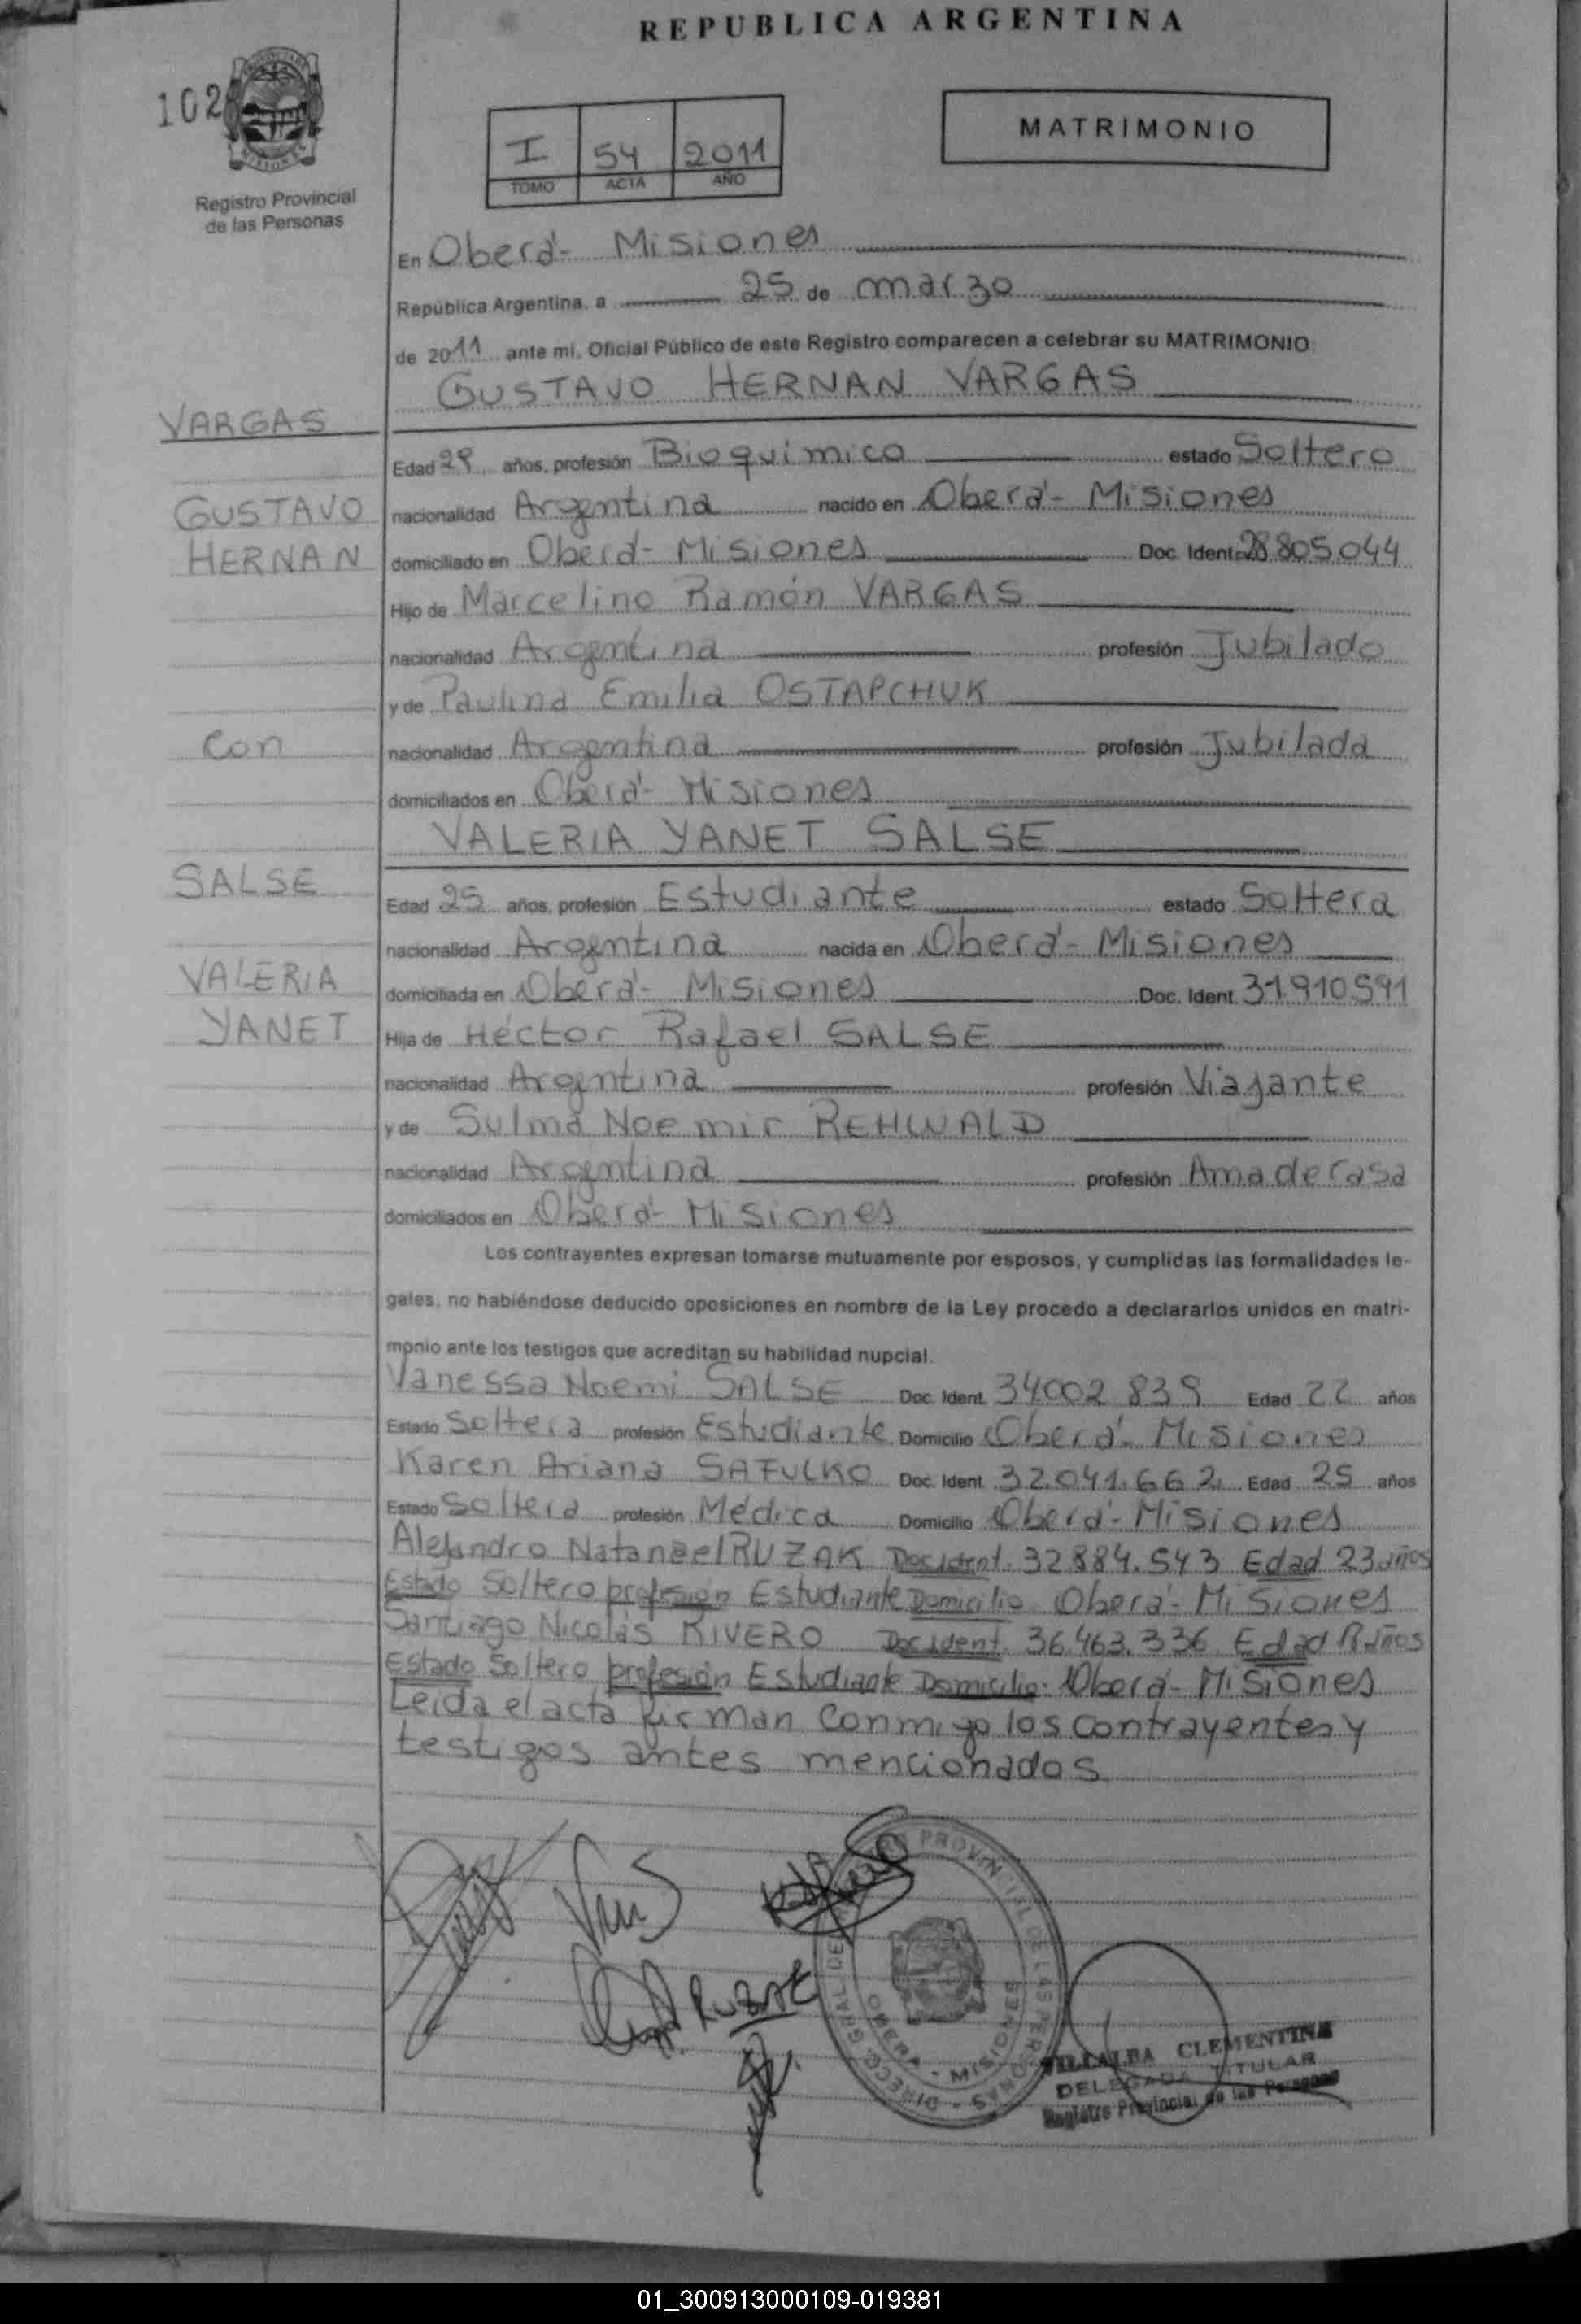 REPUBLICA ARGENTINA
102
Registro Provincial
de las Personas
I 54 2011
TOMO ACTA AÑO
MATRIMONIO
En Oberá- Misiones
República Argentina, a 25 de marzo
de 2011 ante mi, Oficial Público de este Registro comparecen a celebrar su MATRIMONIO:
GUSTAVO HERNAN VARGAS
VARGAS
Edad años, profesión Bioquimico estado Soltero
GUSTAVO
nacionalidad Argentina nacido en Oberá- Misiones
HERNAN
domiciliado en Oberá- Misiones Doc. Ident. 28.805.044
Hijo de Marcelino Ramón VARGAS
nacionalidad Argentina profesión Jubilado
y de Paulina Emilia OSTAPCHUK
con
nacionalidad Argentina profesión Jubilada
domiciliados en Oberá- Misiones
VALERIA YANET SALSE
SALSE
Edad 25 años, profesión Estudiante estado Soltera
nacionalidad Argentina nacida en Oberá- Misiones
VALERIA
domiciliada en Oberá- Misiones Doc. Ident. 31.910.591
YANET
Hija de Héctor Rafael SALSE
nacionalidad Argentina profesión Viajante
y de Sulma Noemir REHWALD
nacionalidad Argentina profesión Ama de Casa
domiciliados en Oberá- Misiones
Los contrayentes expresan tomarse mutuamente por esposos, y cumplidas las formalidades le-
gales, no habiéndose deducido oposiciones en nombre de la Ley procedo a declararlos unidos en matri-
monio ante los testigos que acreditan su habilidad nupcial.
Vanessa Noemi SALSE Doc. Ident. 34.002.839 Edad 22 años
Estado Soltera profesión Estudiante Domicilio Oberá- Misiones
Karen Ariana SAFULKO Doc. Ident. 32.041.662 Edad 25 años
Estado Soltera profesión Médica Domicilio Oberá- Misiones
Alejandro Natanael RUZAK Doc.Ident. 32.884.543 Edad 23 años
Estado Soltero profesión Estudiante Domicilio Oberá- Misiones
Santiago Nicolás RIVERO Doc.Ident. 36.463.336 Edad años
Estado Soltero profesión Estudiante Domicilio: Oberá- Misiones
Leida el acta firman conmigo los contrayentes y
testigos antes mencionados
RUZAK
DIRECC. GRAL. DEL PROVINCIAL DE LAS PERSONAS
OBERA - MISIONES
VILLALBA CLEMENTINA
DELEGADA TITULAR
Registro Provincial de las Personas
01_300913000109-019381